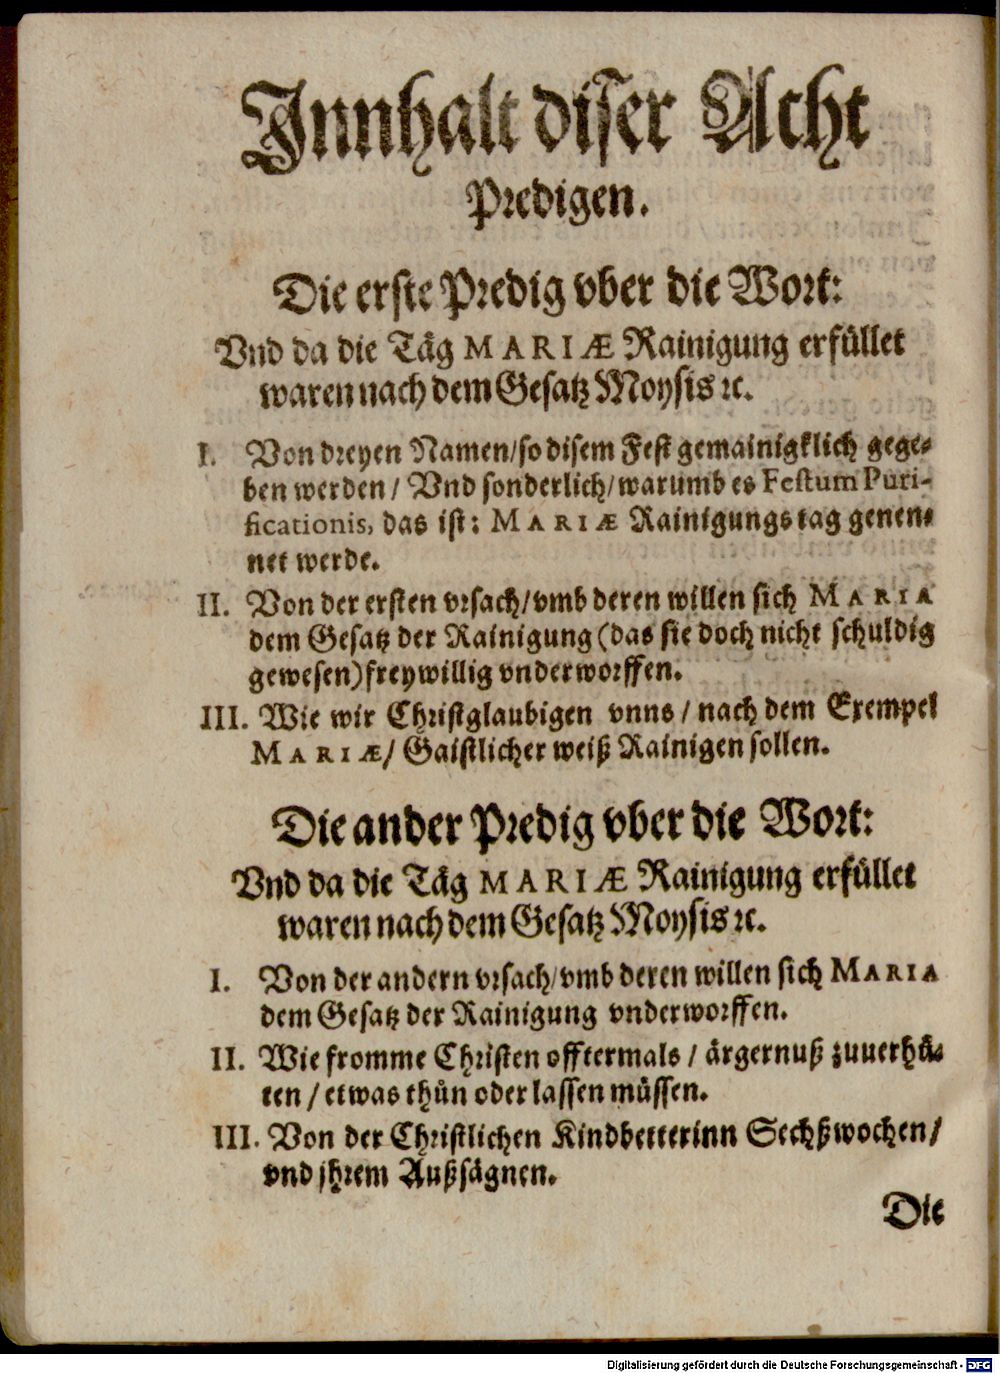 Innhalt diser Acht
Predigen.
Die erste Predig vber die Wort:
Vnd da die Täg MARIÆ Rainigung erfüllet
waren nach dem Gesatz Moysis ꝛc.
I. Von dreyen Namen/ so disem Fest gemainigklich gege-
ben werden/ Vnd sonderlich/ warumb es Festum Puri-
ficationis, das ist: MARIÆ Rainigungs tag genen-
net werde.
II. Von der ersten vrsach/ vmb deren willen sich MARIA
dem Gesatz der Rainigung (das sie doch nicht schuldig
gewesen) freywillig vnderworffen.
III. Wie wir Christglaubigen vnns/ nach dem Exempel
MARIÆ/ Gaistlicher weiß Rainigen sollen.
Die ander Predig vber die Wort:
Vnd da die Täg MARIÆ Rainigung erfüllet
waren nach dem Gesatz Moysis ꝛc.
I. Von der andern vrsach/ vmb deren willen sich MARIA
dem Gesatz der Rainigung vnderworffen.
II. Wie fromme Christen offtermals/ ärgernuß zuuerhü-
ten/ etwas thůn oder lassen müssen.
III. Von der Christlichen Kindbetterinn Sechßwochen/
vnd jhrem Außsägnen.
Die
Digitalisierung gefördert durch die Deutsche Forschungsgemeinschaft - DFG